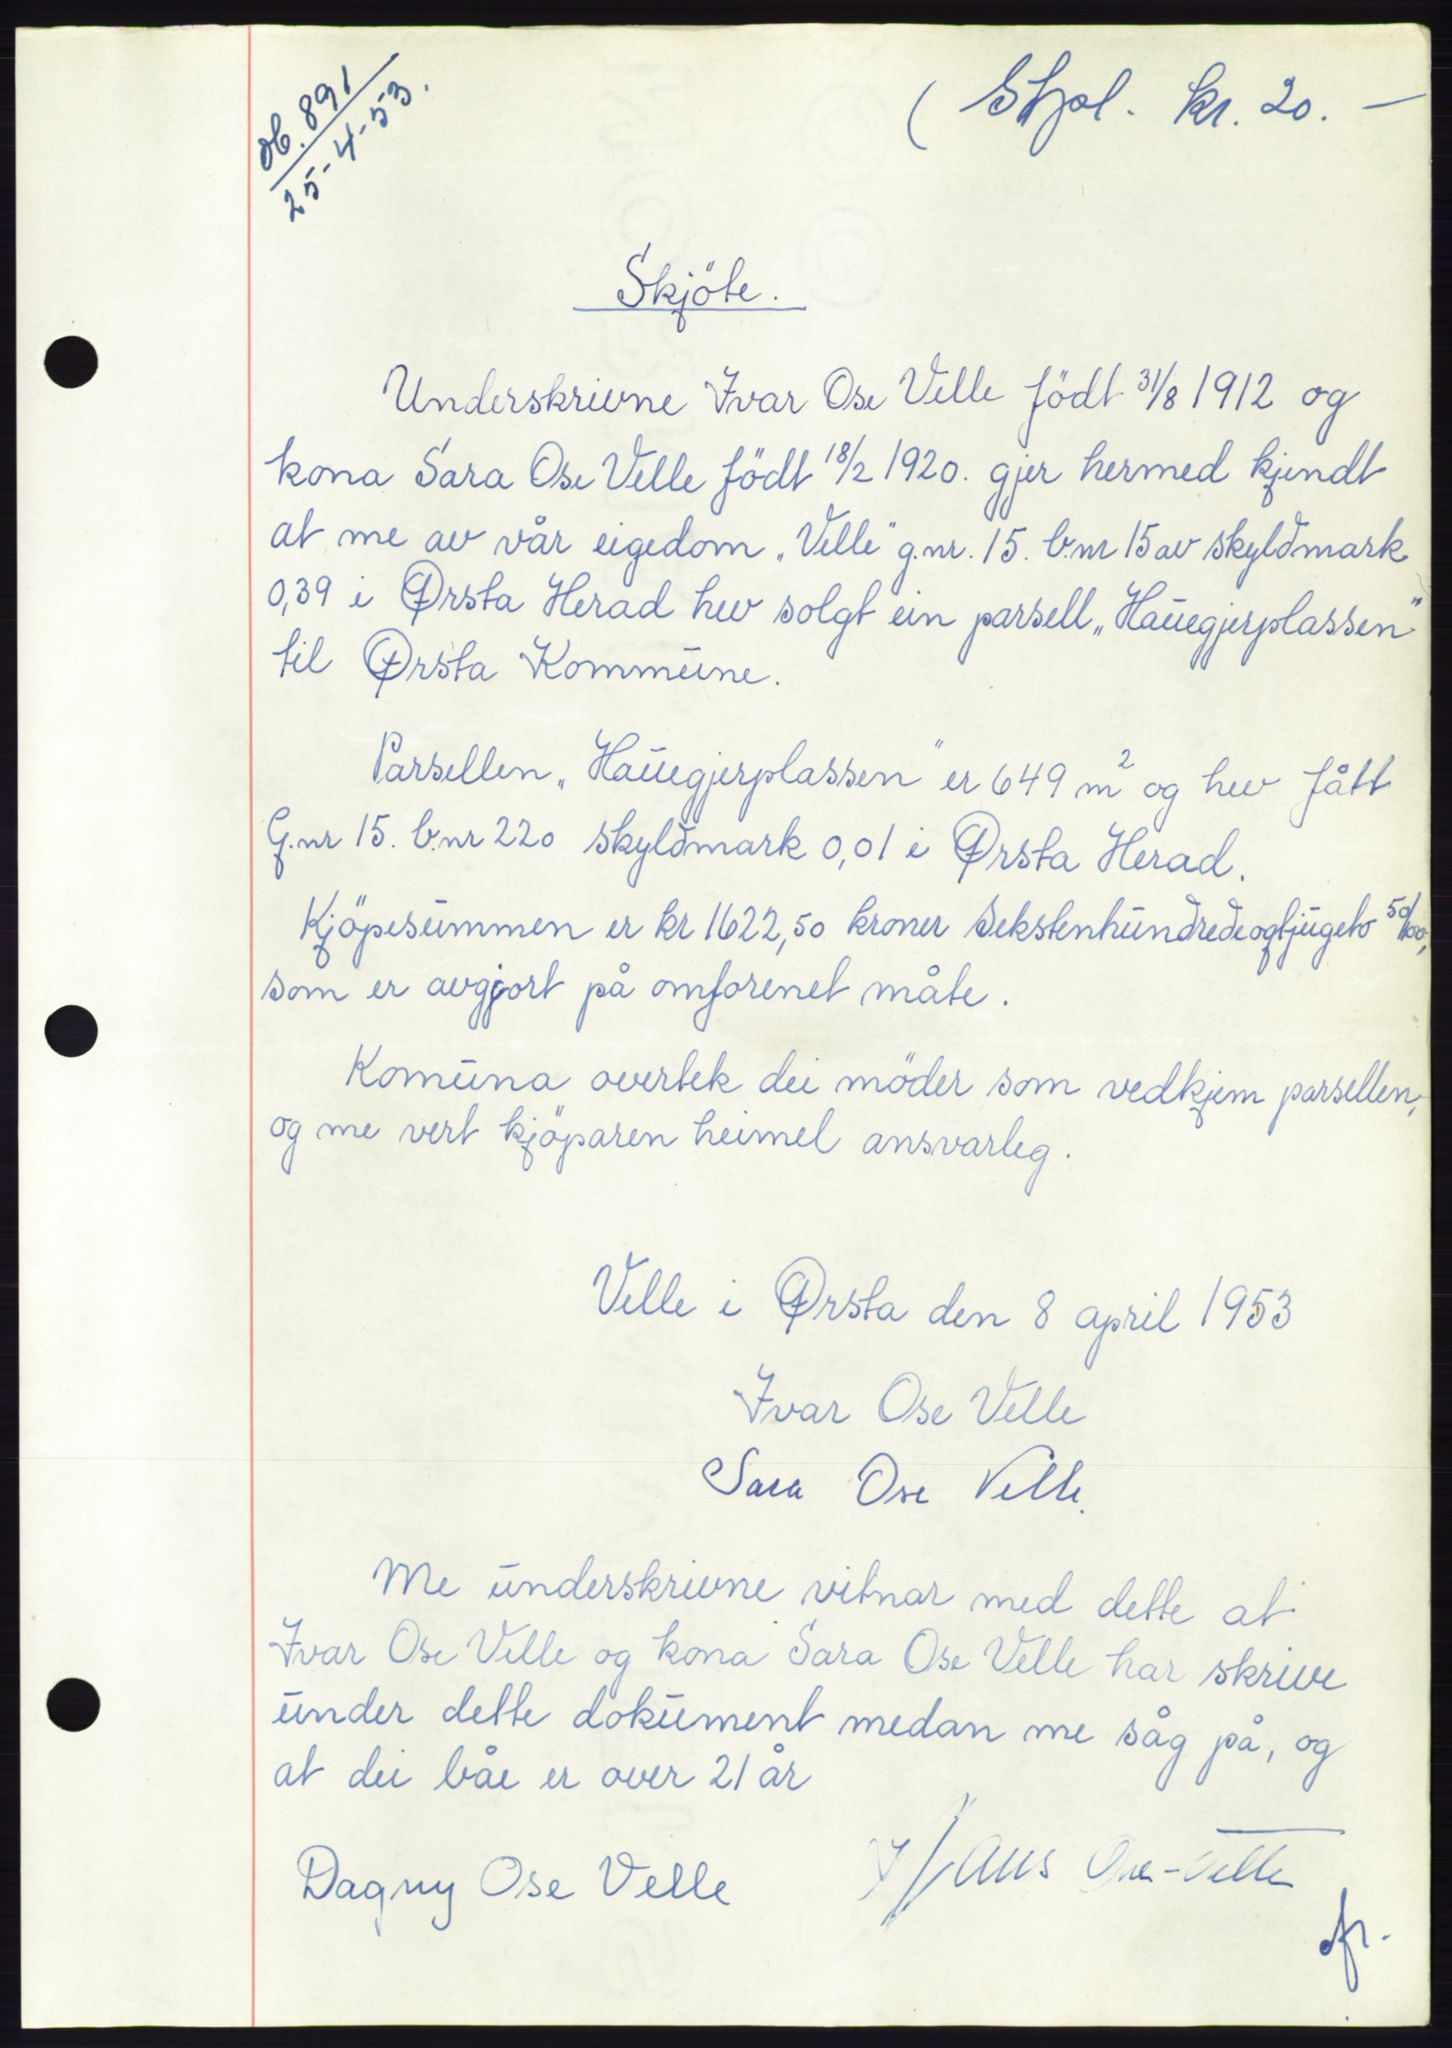 db. 891
25-4-53.
( Stpl. kr. 20. –
Skjöte.
Underskrivne Ivar Ose Velle födt 31/8 1912 og
kona Sara Ose Velle födt 18/2 1920. gjer hermed kjendt
at me av vår eigedom „Velle" g.nr. 15. b.nr 15 av skyldmark
0,39 i Ørsta Herad hev solgt ein parsell „Hauegjerplassen"
til Ørsta Kommune.
Parsellen „Hauegjerplassen" er 649 m² og hev fått
G.nr 15. b.nr 220 skyldmark 0,01 i Ørsta Herad.
Kjöpesummen er kr 1622,50 kroner Sekstenhundredeogtjugeto 50/100,
som er avgjort på omforenet måte.
Komuna overtek dei möder som vedkjem parsellen,
og me vert kjöparen heimel ansvarleg.
Velle i Ørsta den 8 april 1953
Ivar Ose Velle
Sara Ose Velle.
Me underskrivne vitnar med dette at
Ivar Ose Velle og kona Sara Ose Velle har skrive
under dette dokument medan me såg på, og
at dei båe er over 21 år
Dagny Ose Velle
Hans Ose-Velle